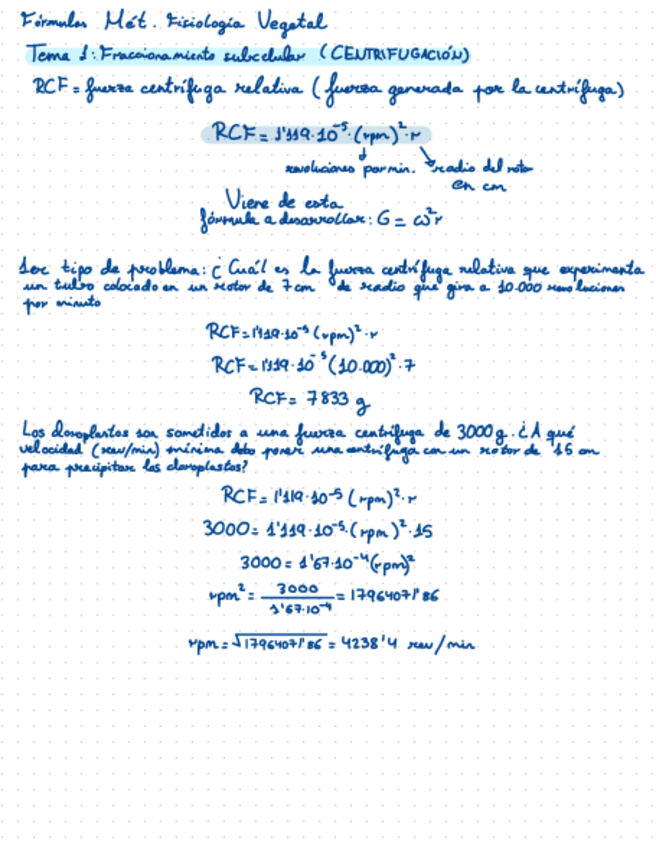 Fórmulas Mét. Fisiología Vegetal
Tema 1: Fraccionamiento subcelular (CENTRIFUGACIÓN)
RCF = fuerza centrífuga relativa (fuerza generada por la centrífuga)
RCF = 1'119·10⁻⁵·(rpm)²·r
revoluciones por min. radio del rotor
en cm
Viene de esta
fórmula a desarrollar: G = ω²r
1er tipo de problema: ¿Cuál es la fuerza centrífuga relativa que experimenta
un tubo colocado en un rotor de 7cm de radio que gira a 10.000 revoluciones
por minuto
RCF = 1'119·10⁻⁵ (rpm)²·r
RCF = 1'119·10⁻⁵ (10.000)²·7
RCF = 7833 g
Los cloroplastos son sometidos a una fuerza centrífuga de 3000g. ¿A qué
velocidad (rev/min) mínima debo poner una centrífuga con un rotor de 15 cm
para precipitar los cloroplastos?
RCF = 1'119·10⁻⁵ (rpm)²·r
3000 = 1'119·10⁻⁵·(rpm)²·15
3000 = 1'67·10⁻⁴(rpm)²
rpm² = 3000 / 1'67·10⁻⁴ = 17964071'86
rpm = √17964071'86 = 4238'4 rev/min